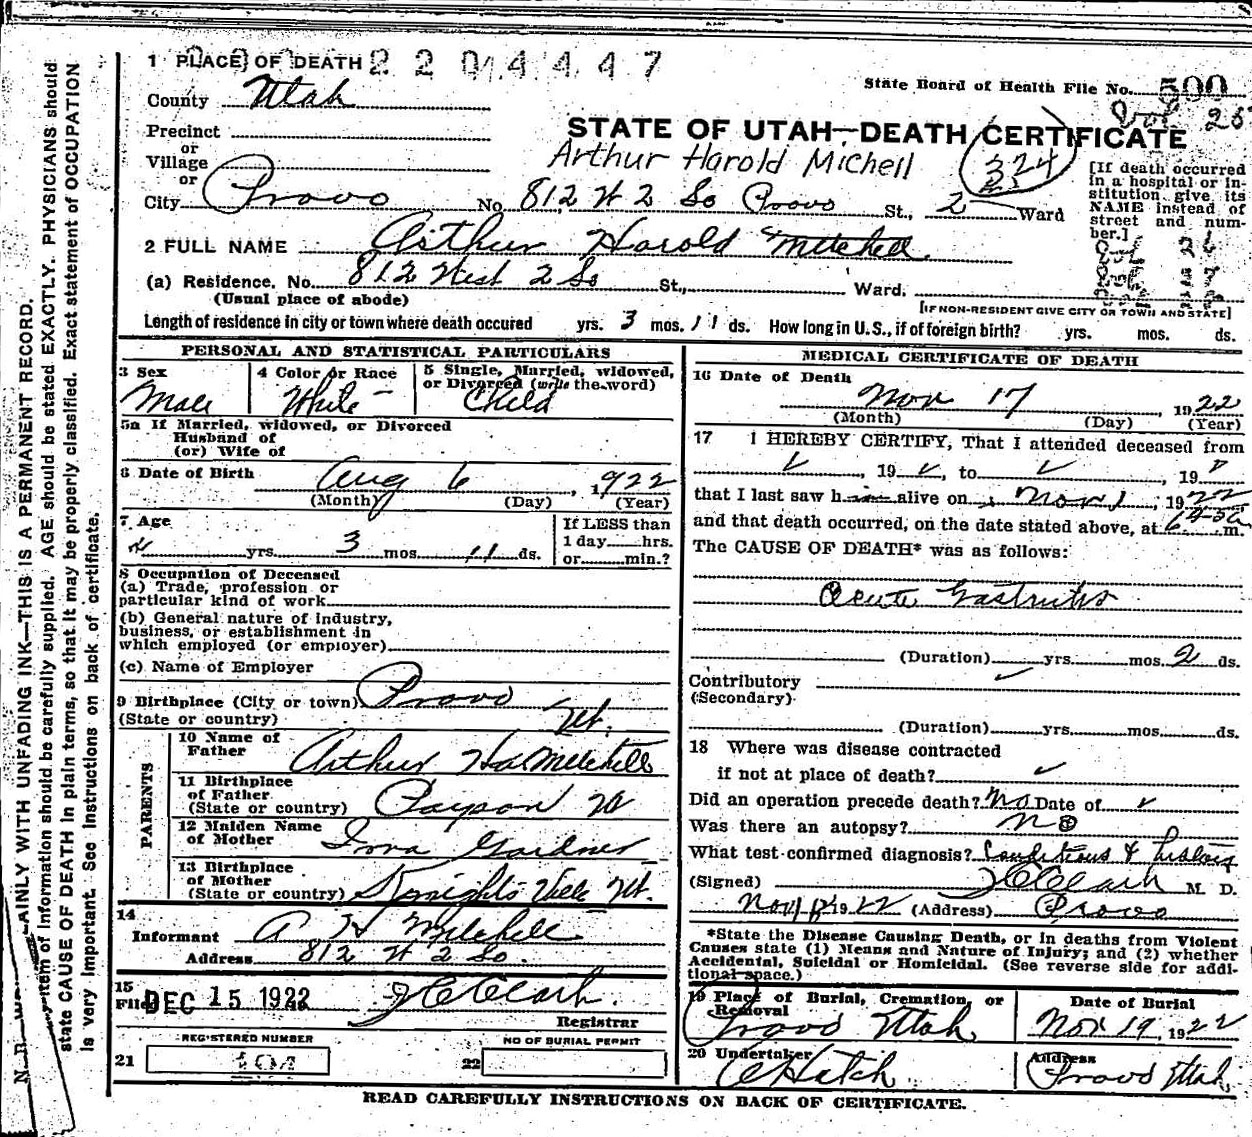 1 PLACE OF DEATH 2204447
State Board of Health File No. 500
County Utah
Vol 25
Precinct
or
Village
or
STATE OF UTAH—DEATH CERTIFICATE
Arthur Harold Michell
324
City Provo No. 812 W 2 So Provo St., 2 Ward
[If death occurred in a hospital or institution give its NAME instead of street and number.]
2 FULL NAME Arthur Harold Mitchell
Vol 26
(a) Residence. No. 812 West 2 So St., Ward.
(Usual place of abode)
[IF NON-RESIDENT GIVE CITY OR TOWN AND STATE]
Length of residence in city or town where death occured yrs. 3 mos. 11 ds. How long in U.S., if of foreign birth? yrs. mos. ds.
PERSONAL AND STATISTICAL PARTICULARS
3 Sex Male
4 Color or Race White
5 Single, Married, widowed, or Divorced (write the word) Child
5a If Married, widowed, or Divorced
Husband of
(or) Wife of
6 Date of Birth Aug 6, 1922
(Month) (Day) (Year)
7 Age
yrs. 3 mos. 11 ds.
If LESS than
1 day hrs.
or min.?
8 Occupation of Deceased
(a) Trade, profession or
particular kind of work
(b) General nature of Industry,
business, or establishment in
which employed (or employer)
(c) Name of Employer
9 Birthplace (City or town) Provo
(State or country) Ut.
PARENTS
10 Name of
Father Arthur Ha Mitchell
11 Birthplace
of Father
(State or country) Payson Ut
12 Maiden Name
of Mother Iona Gardner
13 Birthplace
of Mother
(State or country) Knightsville Ut.
14
Informant A H Mitchell
Address 812 W 2 So.
15
Filed DEC 15 1922 J C Clark.
Registrar
REGISTERED NUMBER
21 104
NO OF BURIAL PERMIT
22
MEDICAL CERTIFICATE OF DEATH
16 Date of Death
Nov 17, 1922
(Month) (Day) (Year)
17 I HEREBY CERTIFY, That I attended deceased from
, 19 , to , 19
that I last saw him alive on Nov 1, 1922
and that death occurred, on the date stated above, at m.
The CAUSE OF DEATH* was as follows:
Acute Gastritis
(Duration) yrs. mos. 2 ds.
Contributory
(Secondary)
(Duration) yrs. mos. ds.
18 Where was disease contracted
if not at place of death?
Did an operation precede death? No Date of
Was there an autopsy? No
What test confirmed diagnosis? Conditions & history
(Signed) J C Clark M. D.
Nov 1922 (Address) Provo
*State the Disease Causing Death, or in deaths from Violent
Causes state (1) Means and Nature of Injury; and (2) whether
Accidental, Suicidal or Homicidal. (See reverse side for addi-
tional space.)
19 Place of Burial, Cremation, or
Removal
Provo Utah
Date of Burial
Nov 19, 1922
20 Undertaker
Hatch
Address
Provo Utah
READ CAREFULLY INSTRUCTIONS ON BACK OF CERTIFICATE.
PLAINLY WITH UNFADING INK—THIS IS A PERMANENT RECORD.
item of information should be carefully supplied. AGE should be stated EXACTLY. PHYSICIANS should
state CAUSE OF DEATH in plain terms, so that it may be properly classified. Exact statement of OCCUPATION
is very important. See Instructions on back of certificate.